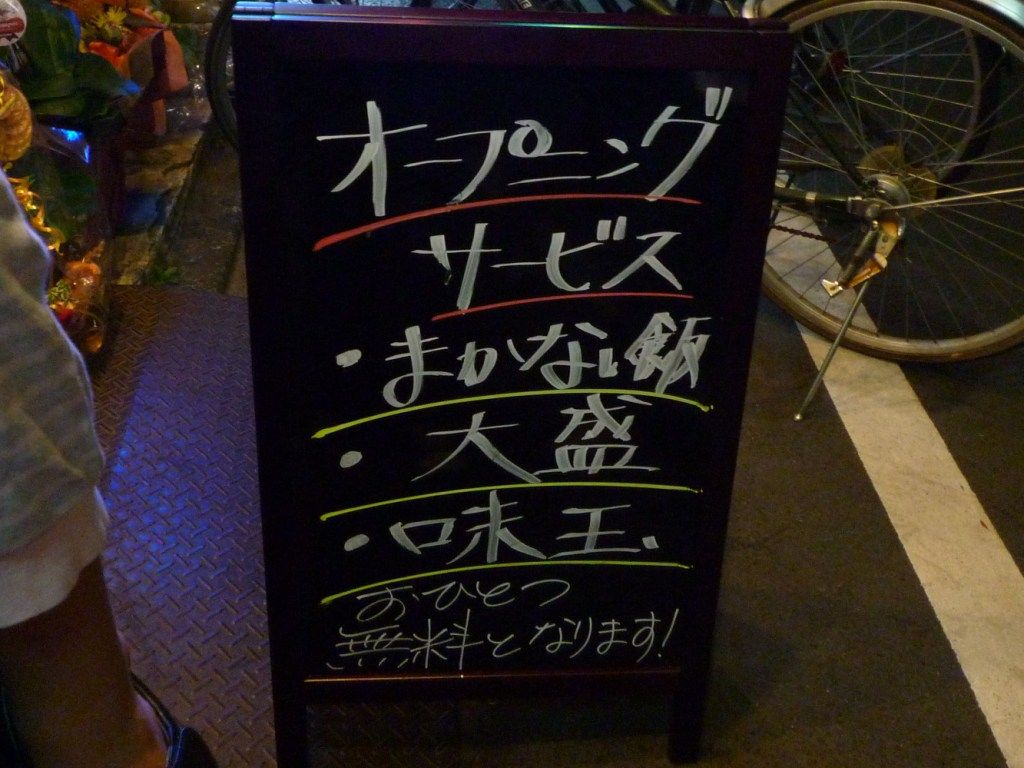 オープニング
サービス
・まかない飯
・大盛
・味玉
おひとつ
無料となります!